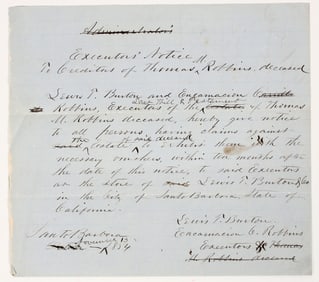 Administrator's
Executors' Notice
To Creditors of Thomas M Robbins, deceased
Lewis T. Burton and Encarnacion
Robbins, Executors of the Last Will & Testament of Thomas
M. Robbins deceased, hereby give notice
to all persons having claims against
the Estate of said deceased to exhibit them with the
necessary vouchers, within ten months after
the date of this notice, to said Executors
at the store of said Lewis T. Burton & Co
in the city of Santa Barbara State of
California.
Lewis T. Burton
Encarnacion C. Robbins
Executors of Thomas
M Robbins deceased
Santa Barbara